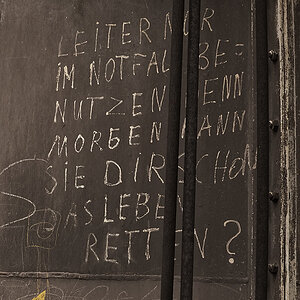 LEITER NUR
IM NOTFALL BE=
NUTZEN DENN
MORGEN KANN
SIE DIR SCHON
DAS LEBEN
RETTEN ?